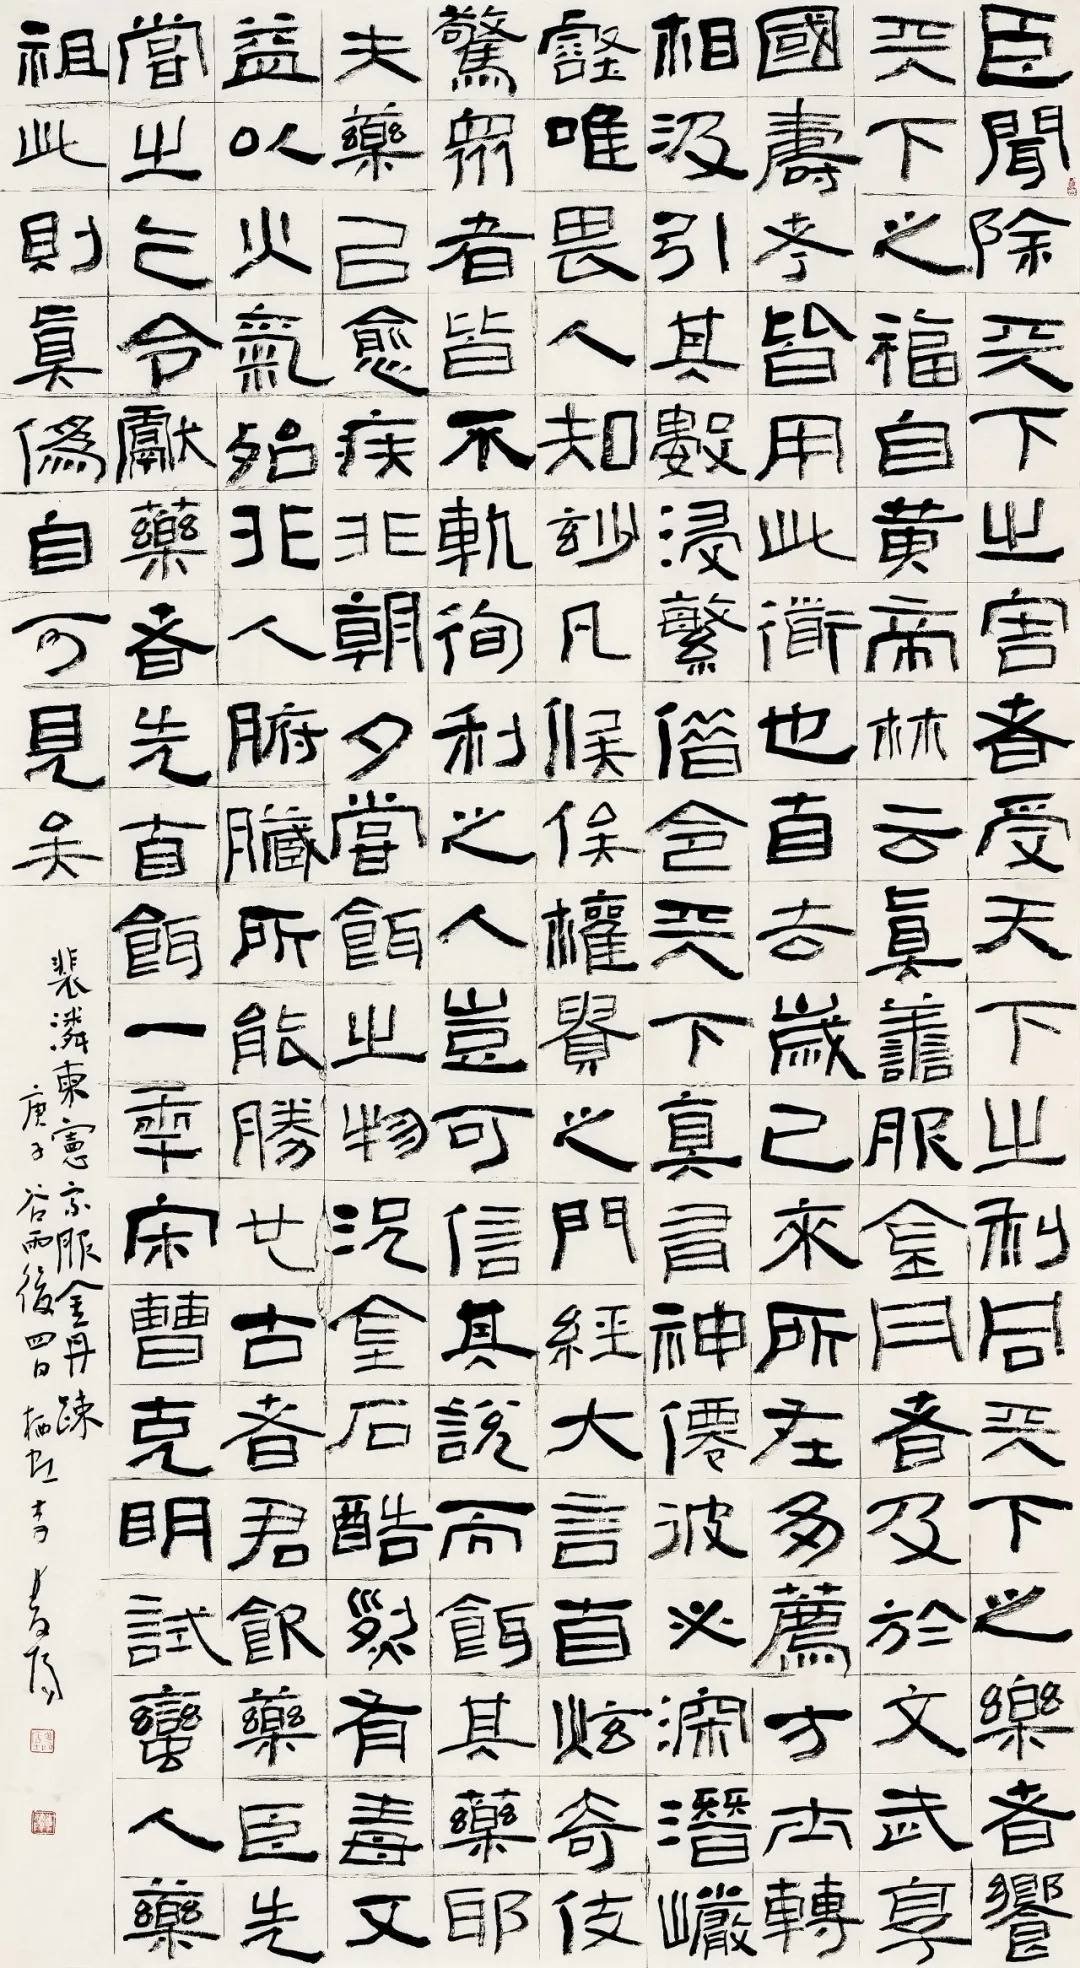 臣聞除天下之害者受天下之利同天下之樂者饗
天下之福自黃帝林云真譱服金丹者及於文武享
國壽考皆用此衜也自去歲已來所在多薦方士轉
相汲引其數浸繁借令天下真有神僊彼必深潛巖
壑唯畏人知玅凡候俟權貴之門經大言自炫奇伎
驚眾者皆不軌徇利之人豈可信其說而餌其藥耶
夫藥已愈疾非朝夕嘗餌之物況金石酷烈有毒又
益以火氣殆非人腑臟所能勝也古者君飲藥臣先
嘗之乞令獻藥者先自餌一年宋曹克明試蠻人藥
祖此則真偽自可見矣
裴潾柬憲宗服金丹疎
庚子谷雨後四日